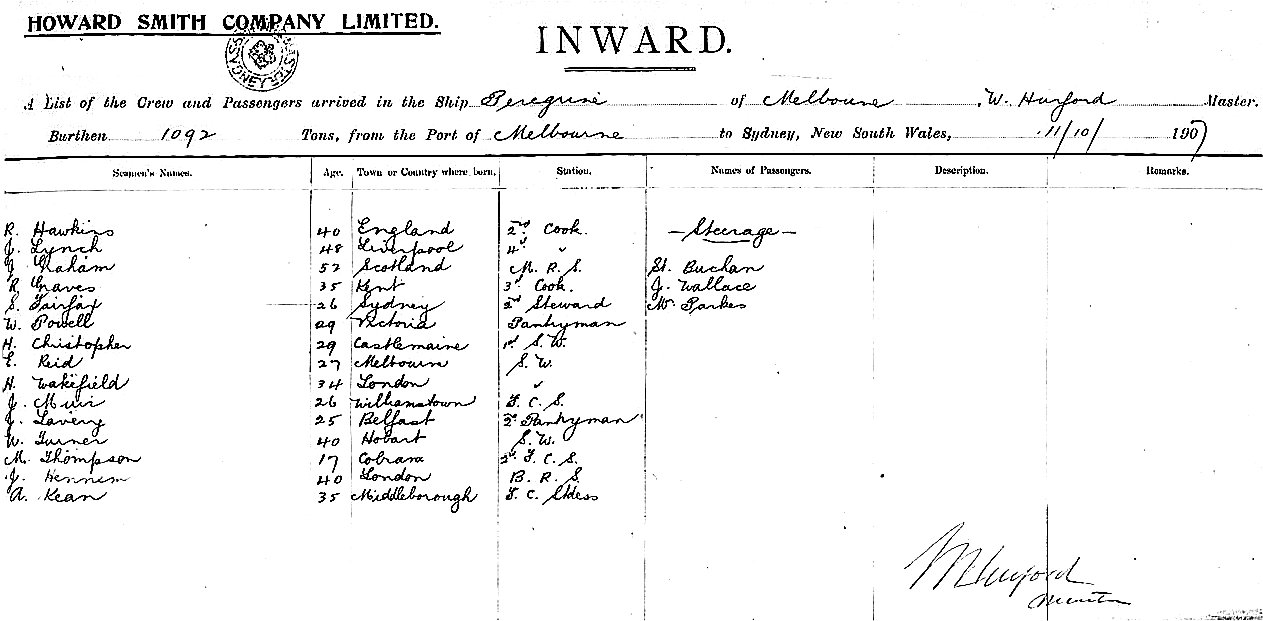 HOWARD SMITH COMPANY LIMITED.
SYDNEY
INWARD.
A List of the Crew and Passengers arrived in the Ship Peregrine of Melbourne, W. Hurford Master.
Burthen 1092 Tons, from the Port of Melbourne to Sydney, New South Wales, 11/10/ 1907
Seamen's Names. Age. Town or Country where born, Station. Names of Passengers. Description. Remarks.
R. Hawkins 40 England 2nd Cook. — Steerage —
J. Lynch 48 Liverpool 4th "
J. Graham 52 Scotland M. R. S. St. Buchan
R. Graves 35 Kent 3rd Cook. J. Wallace
S. Fairfax 26 Sydney 2nd Steward Mr. Parkes
W. Powell 29 Victoria Pantryman
H. Christopher 29 Castlemaine 1st S. W.
E. Reid 27 Melbourne S. W.
H. Wakefield 34 London "
J. Muir 26 Williamstown F. C. S.
J. Lavery 25 Belfast 2nd Pantryman
W. Turner 40 Hobart S. W.
M. Thompson 17 Cobram 2nd F. C. S.
J. 40 London B. R. S.
A. Kean 35 Middleborough F. C. Stdess
W Hurford
Master